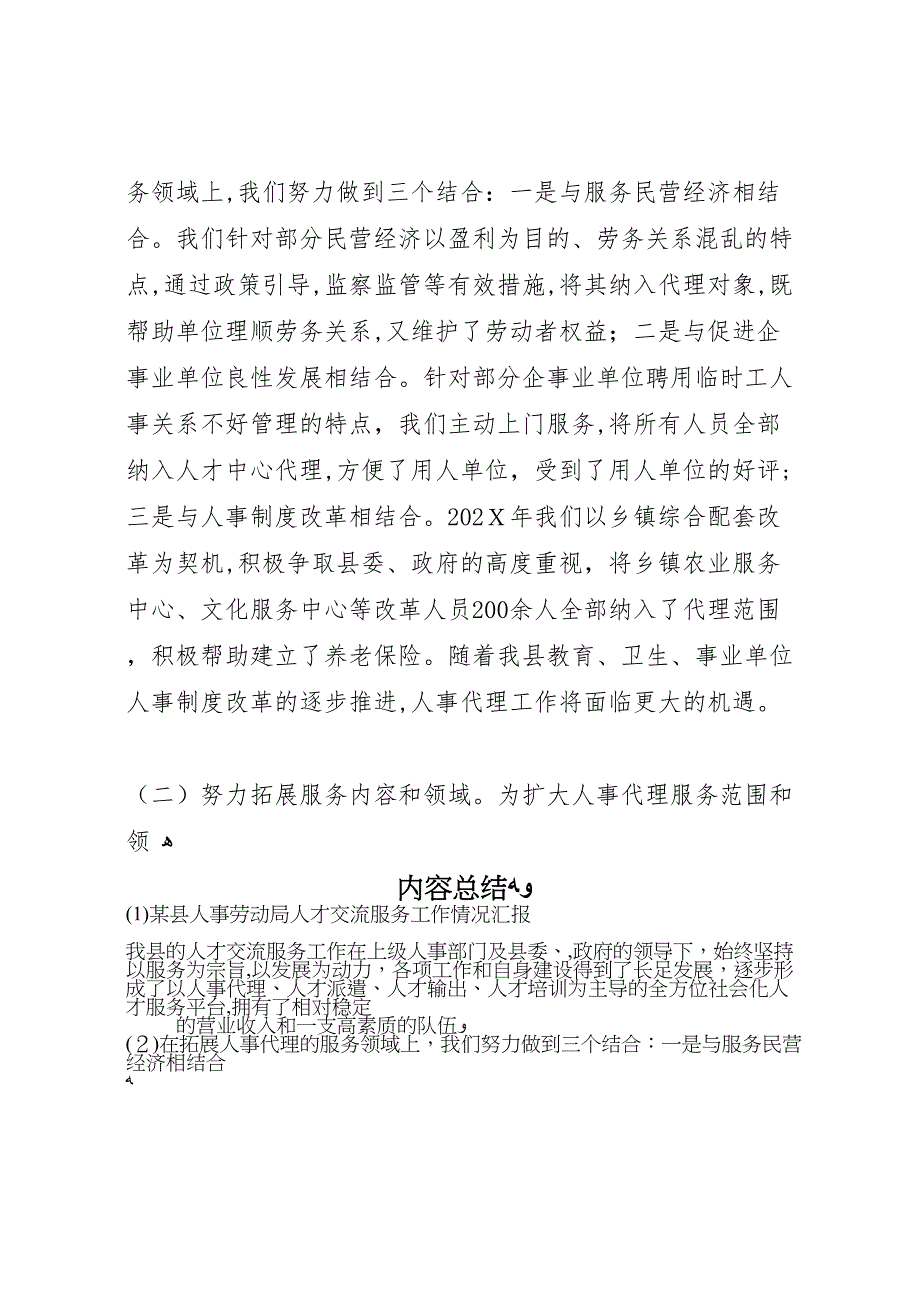 务领域上,我们努力做到三个结合：一是与服务民营经济相结
合。我们针对部分民营经济以盈利为目的、劳务关系混乱的特
点,通过政策引导,监察监管等有效措施,将其纳入代理对象,既
帮助单位理顺劳务关系,又维护了劳动者权益；二是与促进企
事业单位良性发展相结合。针对部分企事业单位聘用临时工人
事关系不好管理的特点，我们主动上门服务,将所有人员全部
纳入人才中心代理,方便了用人单位，受到了用人单位的好评;
三是与人事制度改革相结合。202X年我们以乡镇综合配套改
革为契机,积极争取县委、政府的高度重视，将乡镇农业服务
中心、文化服务中心等改革人员200余人全部纳入了代理范围
，积极帮助建立了养老保险。随着我县教育、卫生、事业单位
人事制度改革的逐步推进,人事代理工作将面临更大的机遇。
（二）努力拓展服务内容和领域。为扩大人事代理服务范围和
领 ﻫ
内容总结
(1)某县人事劳动局人才交流服务工作情况汇报
我县的人才交流服务工作在上级人事部门及县委、,政府的领导下，始终坚持
以服务为宗旨,以发展为动力，各项工作和自身建设得到了长足发展，逐步形
成了以人事代理、人才派遣、人才输出、人才培训为主导的全方位社会化人
才服务平台,拥有了相对稳定
的营业收入和一支高素质的队伍
(２)在拓展人事代理的服务领域上，我们努力做到三个结合：一是与服务民营
经济相结合